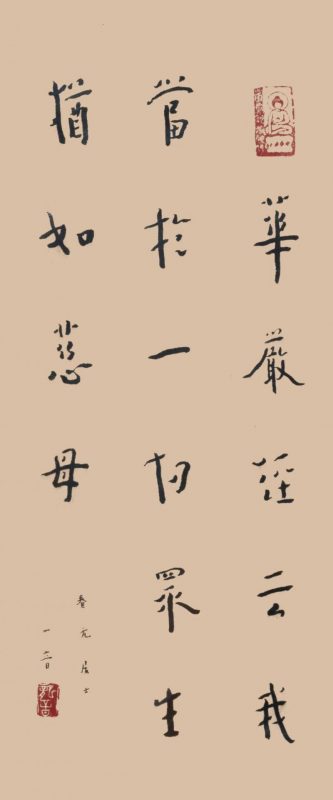 華嚴經云我
當於一切眾生
猶如慈母
居士
一音